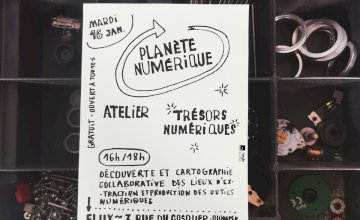 MARDI
16 JAN.
PLANÈTE
NUMÉRIQUE
GRATUIT - OUVERT À TOUTES
ATELIER
TRÉSORS
NUMÉRIQUES
16h/18h
DÉCOUVERTE ET CARTOGRAPHIE
COLLABORATIVE DES LIEUX D'EX-
-TRACTION ET PRODUCTION DES OUTILS
NUMÉRIQUES
RUE DU COSQUER